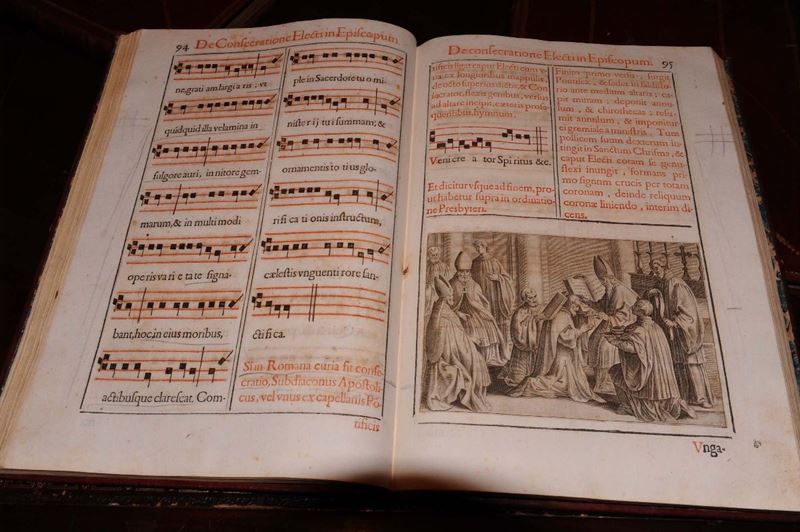 94 De Consecratione Electi in Episcopum.
ne,grati am,largi a ris: vt
quidquid illa velamina in
fulgore auri, in nitore gem-
marum,& in multi modi
ope ris va ri e ta te signa-
bant,hoc,in eius moribus,
actibusque clarescat. Com-
ple in Sacerdote tu o mi-
niste r ij tu i summam; &
ornamentis to ti us glo-
ri fi ca ti onis instructum,
cælestis vnguenti rore san-
cti fi ca.
Si in Romana curia fit conse-
cratio, Subdiaconus Apostoli-
cus, vel vnus ex capellanis Po-
tificis
De consecratione Electi in Episcopum. 95
tificis ligat caput Electi cum v-
na ex longioribus mappulis,
de octo superius dictis; & Con-
secrator, flexis genibus, versus
ad altare incipit, cæteris prose-
quentibus, hymnum.
Veni cre a tor Spi ritus &c.
Et dicitur vsque ad finem, pro-
ut habetur supra in ordinatio-
ne Presbyteri.
Finito primo versu, surgit
Pontifex, & sedet in faldisto-
rio ante medium altaris; ac-
cipit mitram; deponit annu-
lum, & chirothecas; resu-
mit annulum, & imponitur
ei gremiale a ministris. Tum
pollicem suum dexterum in-
tingit in Sanctum Chrisma, &
caput Electi coram se genu-
flexi inungit, formans pri-
mo signum crucis per totam
coronam, deinde reliquum
coronæ liniendo, interim di-
cens.
Vnga-